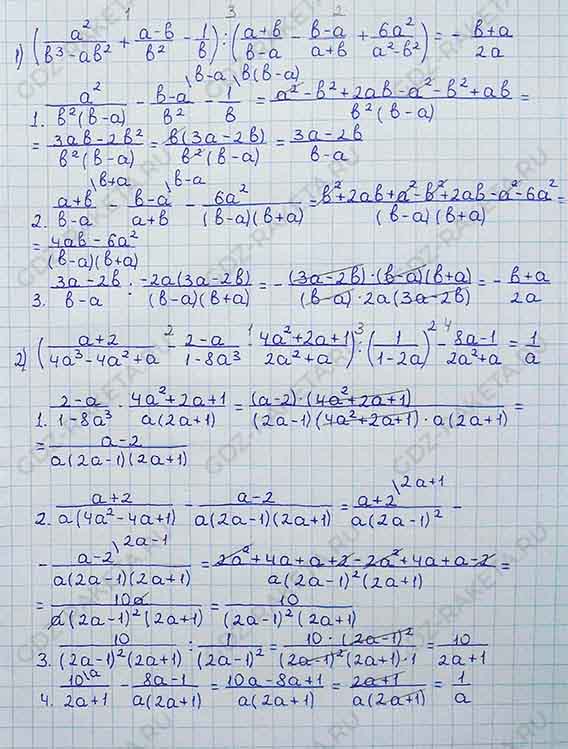 1) (a²/(b³-ab²) + (a-b)/b² - 1/b) : ((a+b)/(b-a) - (b-a)/(a+b) + 6a²/(a²-b²)) = - (b+a)/2a
1. a²/(b²(b-a)) - (b-a)/b² \b-a - 1/b \b(b-a) = (a²-b²+2ab-a²-b²+ab)/(b²(b-a)) =
= (3ab-2b²)/(b²(b-a)) = b(3a-2b)/(b²(b-a)) = (3a-2b)/(b-a)
2. (a+b)/(b-a) \b+a - (b-a)/(a+b) \b-a - 6a²/((b-a)(b+a)) = (b²+2ab+a²-b²+2ab-a²-6a²)/((b-a)(b+a)) =
= (4ab-6a²)/((b-a)(b+a))
3. (3a-2b)/(b-a) : -2a(3a-2b)/((b-a)(b+a)) = - ((3a-2b)·(b-a)(b+a))/((b-a)·2a(3a-2b)) = - (b+a)/2a
2) ((a+2)/(4a³-4a²+a) - (2-a)/(1-8a³) · (4a²+2a+1)/(2a²+a)) : (1/(1-2a))² - (8a-1)/(2a²+a) = 1/a
1. (2-a)/(1-8a³) · (4a²+2a+1)/(a(2a+1)) = ((a-2)·(4a²+2a+1))/((2a-1)(4a²+2a+1)·a(2a+1)) =
= (a-2)/(a(2a-1)(2a+1))
2. (a+2)/(a(4a²-4a+1)) - (a-2)/(a(2a-1)(2a+1)) = (a+2)/(a(2a-1)²) \2a+1 -
- (a-2)/(a(2a-1)(2a+1)) \2a-1 = (2a²+4a+a+2-2a²+4a+a-2)/(a(2a-1)²(2a+1)) =
= 10a/(a(2a-1)²(2a+1)) = 10/((2a-1)²(2a+1))
3. 10/((2a-1)²(2a+1)) : 1/(2a-1)² = (10·(2a-1)²)/((2a-1)²(2a+1)·1) = 10/(2a+1)
4. 10/(2a+1) \a - (8a-1)/(a(2a+1)) = (10a-8a+1)/(a(2a+1)) = (2a+1)/(a(2a+1)) = 1/a
GDZ-RAKETA.RU